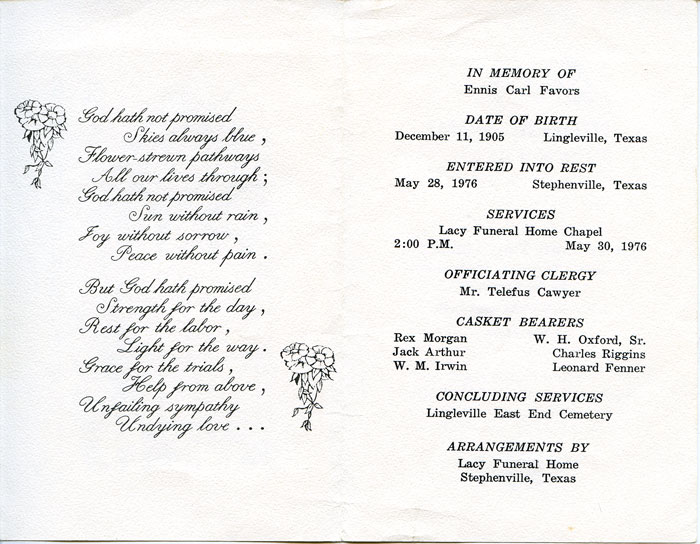 God hath not promised
Skies always blue,
Flower-strewn pathways
All our lives through;
God hath not promised
Sun without rain,
Joy without sorrow,
Peace without pain.
But God hath promised
Strength for the day,
Rest for the labor,
Light for the way.
Grace for the trials,
Help from above,
Unfailing sympathy
Undying love...
IN MEMORY OF
Ennis Carl Favors
DATE OF BIRTH
December 11, 1905 Lingleville, Texas
ENTERED INTO REST
May 28, 1976 Stephenville, Texas
SERVICES
Lacy Funeral Home Chapel
2:00 P.M. May 30, 1976
OFFICIATING CLERGY
Mr. Telefus Cawyer
CASKET BEARERS
Rex Morgan W. H. Oxford, Sr.
Jack Arthur Charles Riggins
W. M. Irwin Leonard Fenner
CONCLUDING SERVICES
Lingleville East End Cemetery
ARRANGEMENTS BY
Lacy Funeral Home
Stephenville, Texas